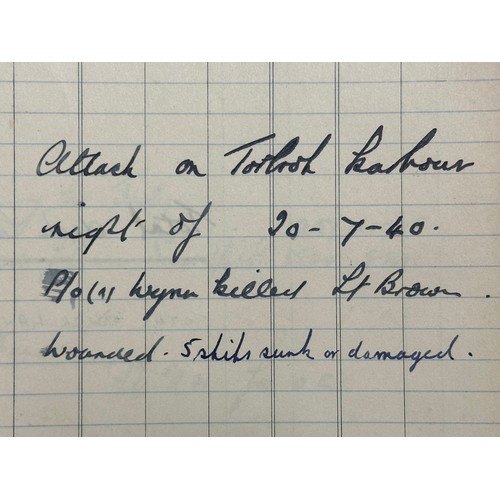 Attack on Tobruk harbour
night of 20-7-40.
P/O(A) Wynn killed Lt Brown.
wounded. 5 ships sunk or damaged.